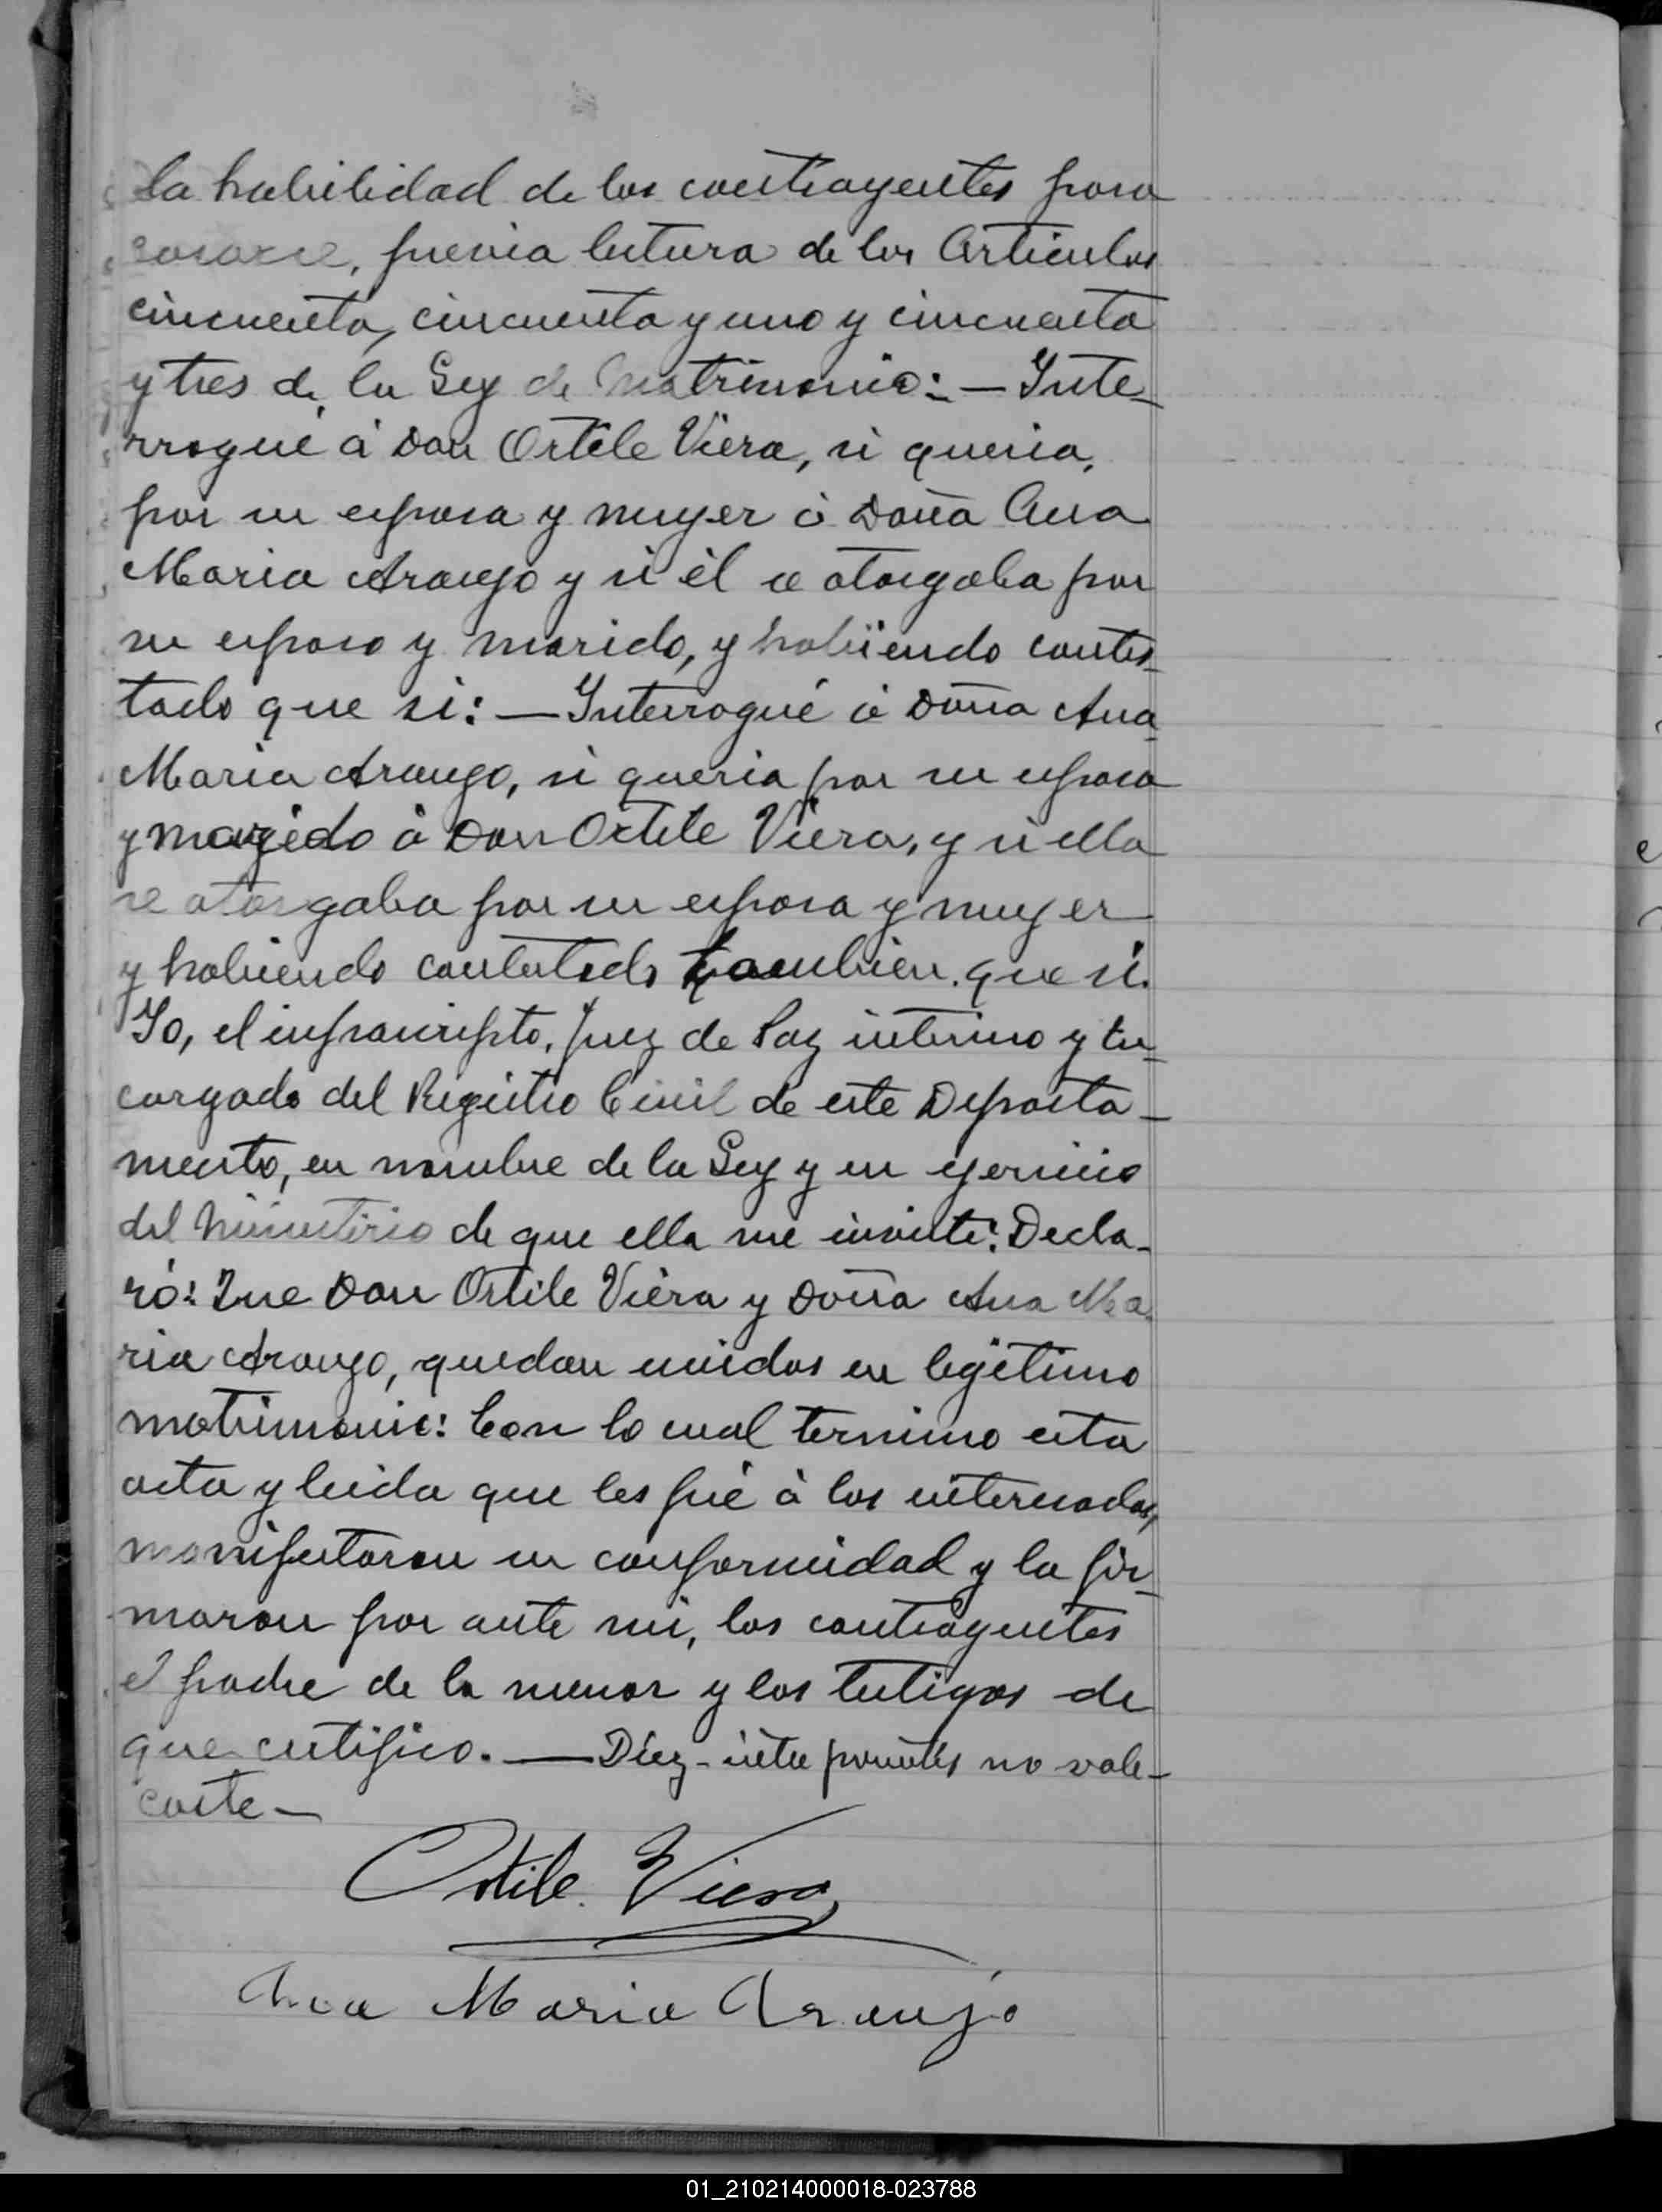 la habilidad de los contrayentes para
casarse, previa lectura de los Articulos
cincuenta, cincuenta y uno y cincuenta
y tres de la Ley de Matrimonio: — Inte-
rrogué á Don Ortile Viera, si queria,
por su esposa y muger á Doña Ana
Maria Araujo y si él se otorgaba por
su esposo y marido, y habiendo contes-
tado que si: — Interrogué á Doña Ana
Maria Araujo, si queria por su esposo
y marido á Don Ortile Viera, y si ella
se otorgaba por su esposa y muger
y habiendo contestado tambien que si.
Yo, el infrascripto, Juez de Paz interino y En-
cargado del Registro Civil de este Departa-
mento, en nombre de la Ley y en egercicio
del Ministerio de que ella me inviste: Decla-
ró: Que Don Ortile Viera y Doña Ana Ma-
ria Araujo, quedan unidos en legítimo
matrimonio: Con lo cual termino esta
acta y leida que les fué á los interesados,
manifestaron su conformidad y la fir-
maron por ante mi, los contrayentes
el padre de la menor y los testigos de
que certifico. — Diez-siete no vale-
Ortile Viera
Ana Maria Araujo
01_210214000018-023788